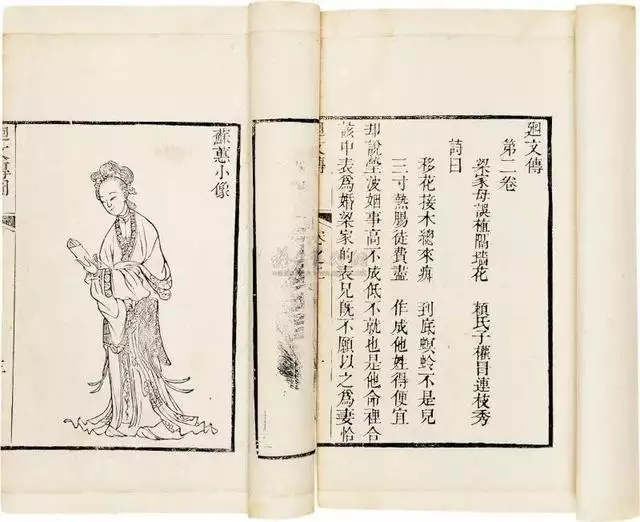 廻文傳
第二卷
梁家母誤植隔墻花　賴氏子權冒連枝秀
詩曰
移花接木總來痴　到底螟蛉不是兒
三寸熱腸徒費盡　作成他姓得便宜
却說瑩波姻事高不成低不就也是他命裡合
該中表爲婚梁家的表兄既不願以之爲妻恰
廻文傳
蘇蕙小像